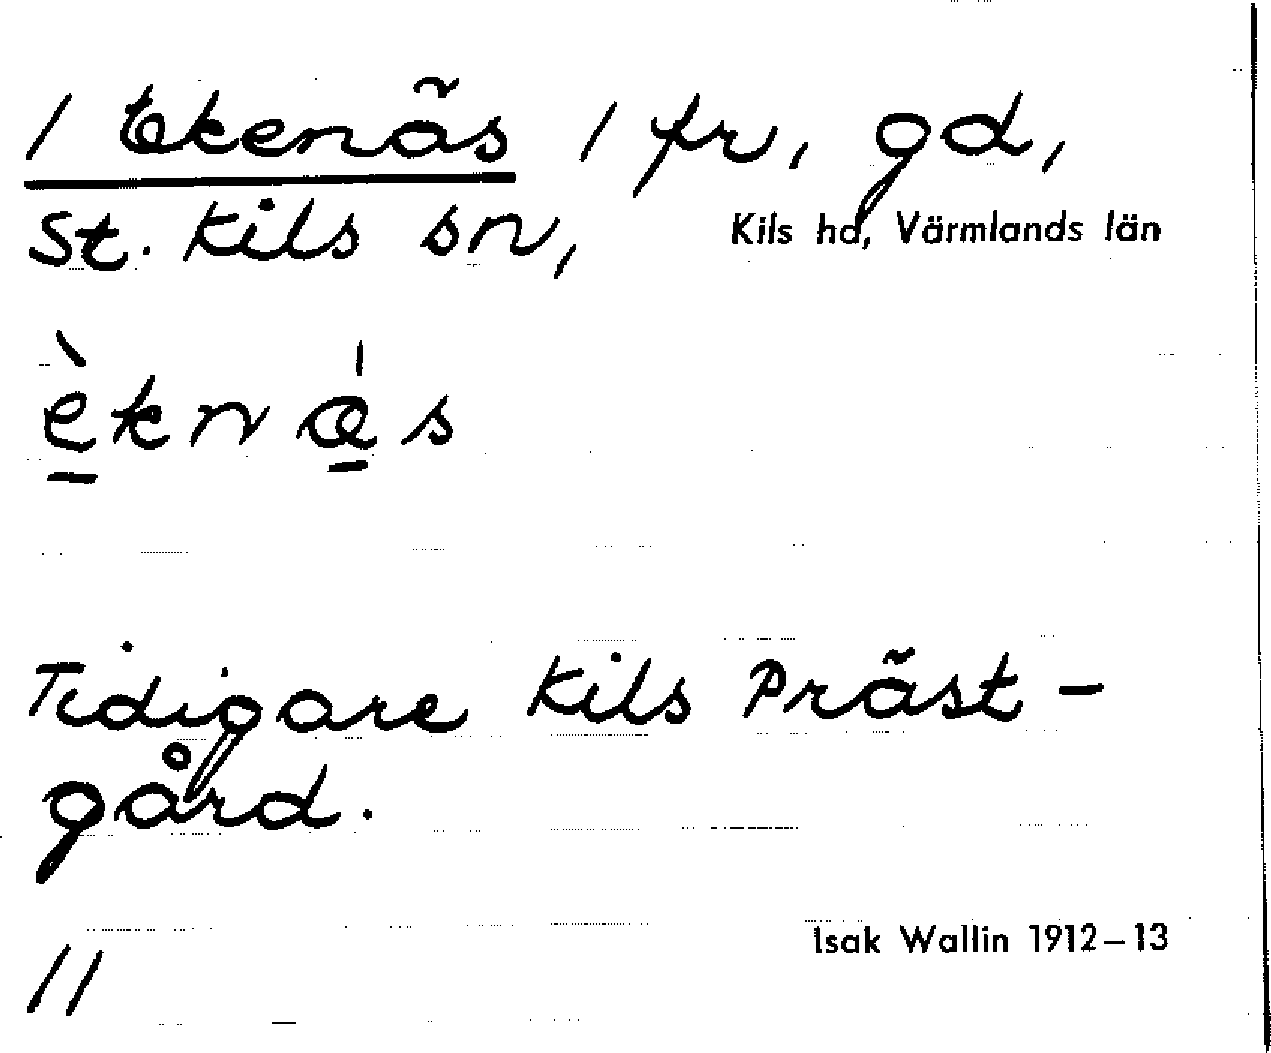 1 Ekenäs 1 fr, gd,
St. Kils sn, Kils hd, Värmlands län
èknás
Tidigare Kils Präst-
gård.
Isak Wallin 1912–13
11